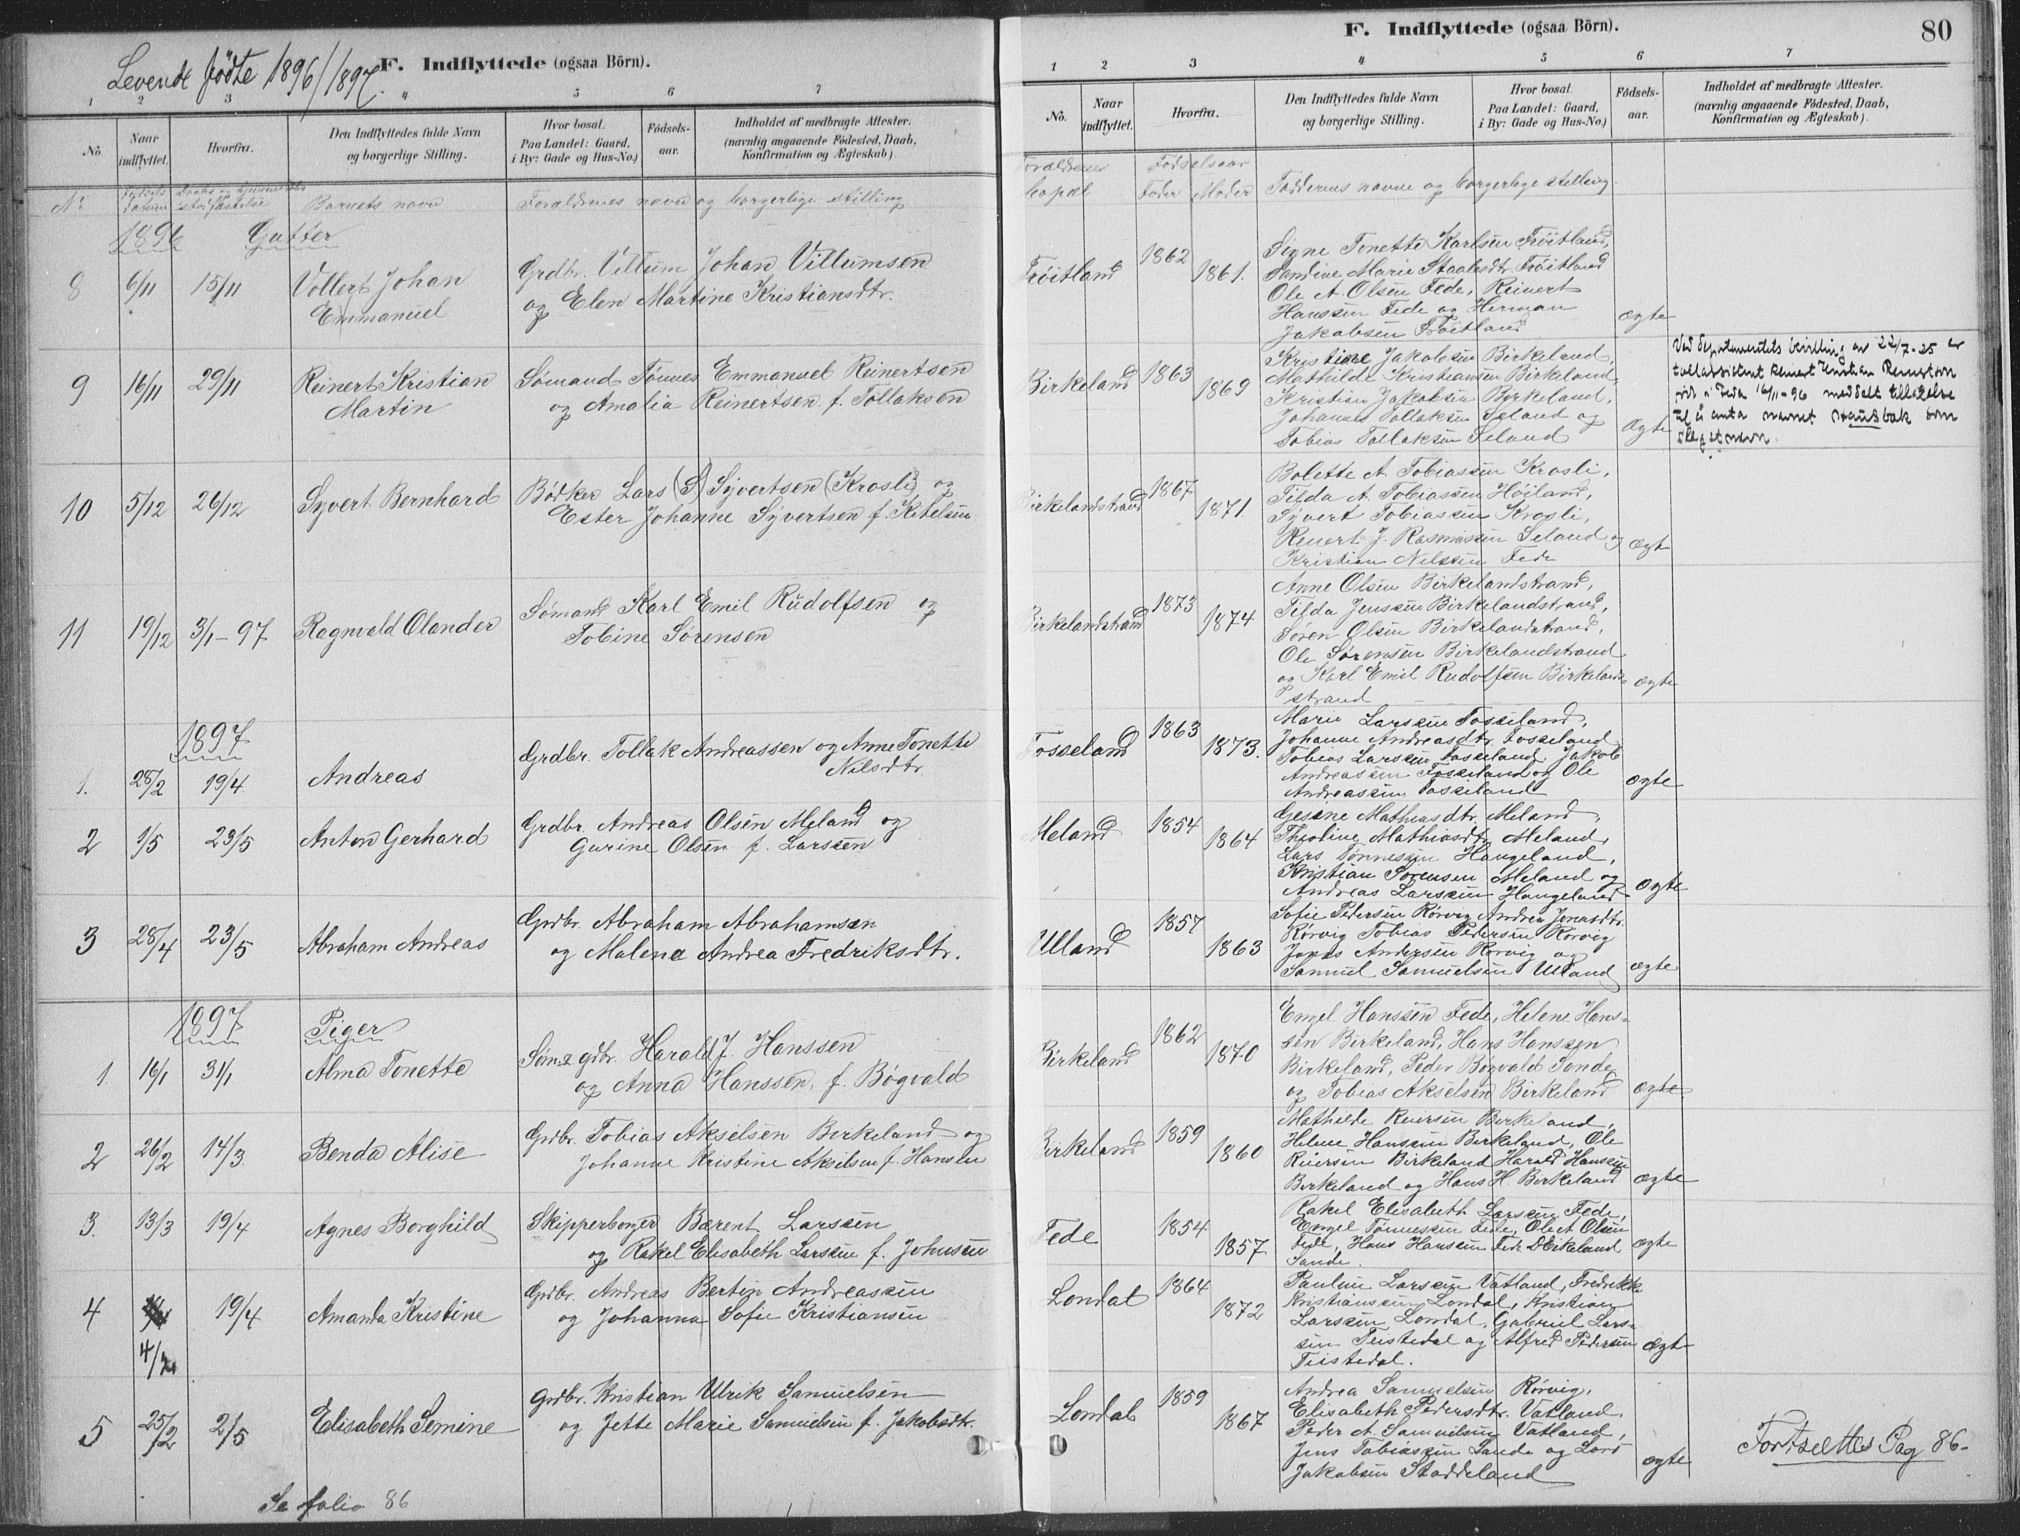 Levende fødte 1896/1897.
F. Indflyttede (ogsaa Börn).
1 2 3 4 5 6 7
No.
Naar indflyttet.
Hvorfra.
Den Indflyttedes fulde Navn og borgerlige Stilling.
Hvor bosat. Paa Landet: Gaard, i By: Gade og Hus-No.)
Födsels-aar.
Indholdet af medbragte Attester. (navnlig angaaende Födested, Daab, Konfirmation og Ægteskab).
Nº Fødsels datum Barnets navn Forældrenes navn og borgerlige stilling
1896 Gutter
8 6/11 15/11 Vollert Johan
Emmanuel
Grdbr. Villum Johan Villumsen
og Elen Martine Kristiansdtr.
9 16/11 29/11 Reinert Kristian
Martin
Sømand Tønnes Emmanuel Reinertsen
og Amalia Reinertsen f. Tollaksen
10 5/12 26/12 Syvert Bernhard
Bødker Lars (S) Syvertsen (Krosli) og
Ester Johanne Syvertsen f. Ketelsen
11 19/12 3/1-97 Ragnvald Olander
Sømand Karl Emil Rudolfsen og
Tobine Sørensen
1897
1. 28/2 19/4 Andreas
Grdbr. Tollak Andreassen og Anne Tonette
Nilsdtr
2 1/5 23/5 Anton Gerhard
Grdbr. Andreas Olsen Meland og
Gurine Olsen f. Larssen
3 28/4 23/5 Abraham Andreas
Grdbr. Abraham Abrahamsen
og Malena Andrea Fredriksdtr.
1897 Piger
1. 16/1 31/1 Alma Tonette
Søm. & gdbr. Harald J. Hanssen
og Anna Hanssen, f. Bøgvald
2 26/2 14/3 Benda Alise
Grdbr. Tobias Akselsen Birkeland og
Johanne Kristine Akselsen f. Hansen
3. 13/3 19/4 Agnes Borghild
Skipperborger Bærent Larssen
og Rakel Elisabeth Larssen f. Johnsen
4 4/2 19/4 Amanda Kristine
Grdbr. Andreas Bertin Andreassen
og Johanna Sofie Kristiansen
5 25/2 2/5 Elisabeth Semine
Grdbr. Kristian Ulrik Samuelsen
og Jette Marie Samuelsen f. Jakobsdtr.
Se folio 86
F. Indflyttede (ogsaa Börn).
80
1 2 3 4 5 6 7
No.
Naar indflyttet.
Hvorfra.
Den Indflyttedes fulde Navn og borgerlige Stilling.
Hvor bosat. Paa Landet: Gaard, i By: Gade og Hus-No.)
Födsels-aar.
Indholdet af medbragte Attester. (navnlig angaaende Födested, Daab, Konfirmation og Ægteskab).
Forældrenes bopæl
Fødselsaar
Fader Moder
Faddernes navne og borgerlige stilling
Frøitland 1862 1861.
Signe Tonette Karlsen Frøitland,
Sandine Marie Staalesdtr. Frøitland
Ole A. Olsen Fede, Reinert
Hanssen Fede og Herman
Jakobsen Frøitland
ægte
Birkeland 1863 1869
Kristine Jakobsen Birkeland,
Mathilde Kristiansen Birkeland,
Kristian Jakobsen Birkeland,
Johannes Tollaksen Seland og
Tobias Tollaksen Seland
Ægte
Ved departementets bevilling av 22/7-25 er
tollassistent Reinert Kristian Reinertsen
født i Feda 16/11-96 meddelt tillatelse
til å anta navnet Strausbak som
slegtsnavn.
Birkelandstrand 1867 1871.
Bolette A. Tobiassen Krosli,
Tilda A. Tobiassen Høiland,
Syvert Tobiassen Krosli,
Reinert J. Rasmussen Seland og
Kristian Nilssen Fede
ægte
Birkelandstrand 1873 1874
Anne Olsen Birkelandstrand,
Tilda Jenssen Birkelandstrand,
Søren Olsen Birkelandstrand,
Ole Sørensen Birkelandstrand
og Karl Emil Rudolfsen Birkeland=
strand
ægte
Fosseland 1863 1873.
Marie Larssen Fosseland,
Johanne Andreasdtr. Fosseland
Tobias Larssen Fosseland, Jakob
Andreassen Fosseland og Ole
Andreassen Fosseland
ægte
Meland 1854 1864
Gesine Mathiasdtr. Meland,
Theoline Mathiasdtr. Meland,
Lars Tønnessen Haugeland,
Kristian Sørensen Meland og
Andreas Larssen Haugeland
ægte
Ulland 1857 1863
Sofie Pedersen Rørvig Andrea Jonasdtr.
Rørvig Tobias Pedersen Rørvig
Jonas Andersen Rørvig og
Samuel Samuelsen Ulland
ægte
Birkeland 1862 1870
Engel Hanssen Fede, Helene Hans=
sen Birkeland, Hans Hanssen
Birkeland, Peder Bøgvald Sande
og Tobias Akselsen Birkeland
ægte
Birkeland 1859 1860
Mathilde Reiersen Birkeland,
Helene Hanssen Birkeland, Ole
Reiersen Birkeland Harald Hanssen
Birkeland og Hans H. Birkeland
ægte
Fede 1854 1857
Rakel Elisabeth Larssen Fede,
Engel Tønnessen Fede, Ole A. Olsen
Fede, Hans Hanssen Fede D. Eikeland
Sande.
ægte
Londal 1864 1872
Pauline Larssen Vatland, Fredrikke
Kristianssen Londal, Kristian
Larssen Londal, Gabriel Lars=
sen Teistedal og Alfred Pedersen
Teistedal.
ægte
Londal 1859 1867
Andrea Samuelsen Rørvig,
Elisabeth Pedersdtr. Vatland,
Peder A. Samuelsen Vatland,
Jens Tobiassen Sande og Lars
Jakobsen Staddeland
ægte
Fortsættes Pag 86-